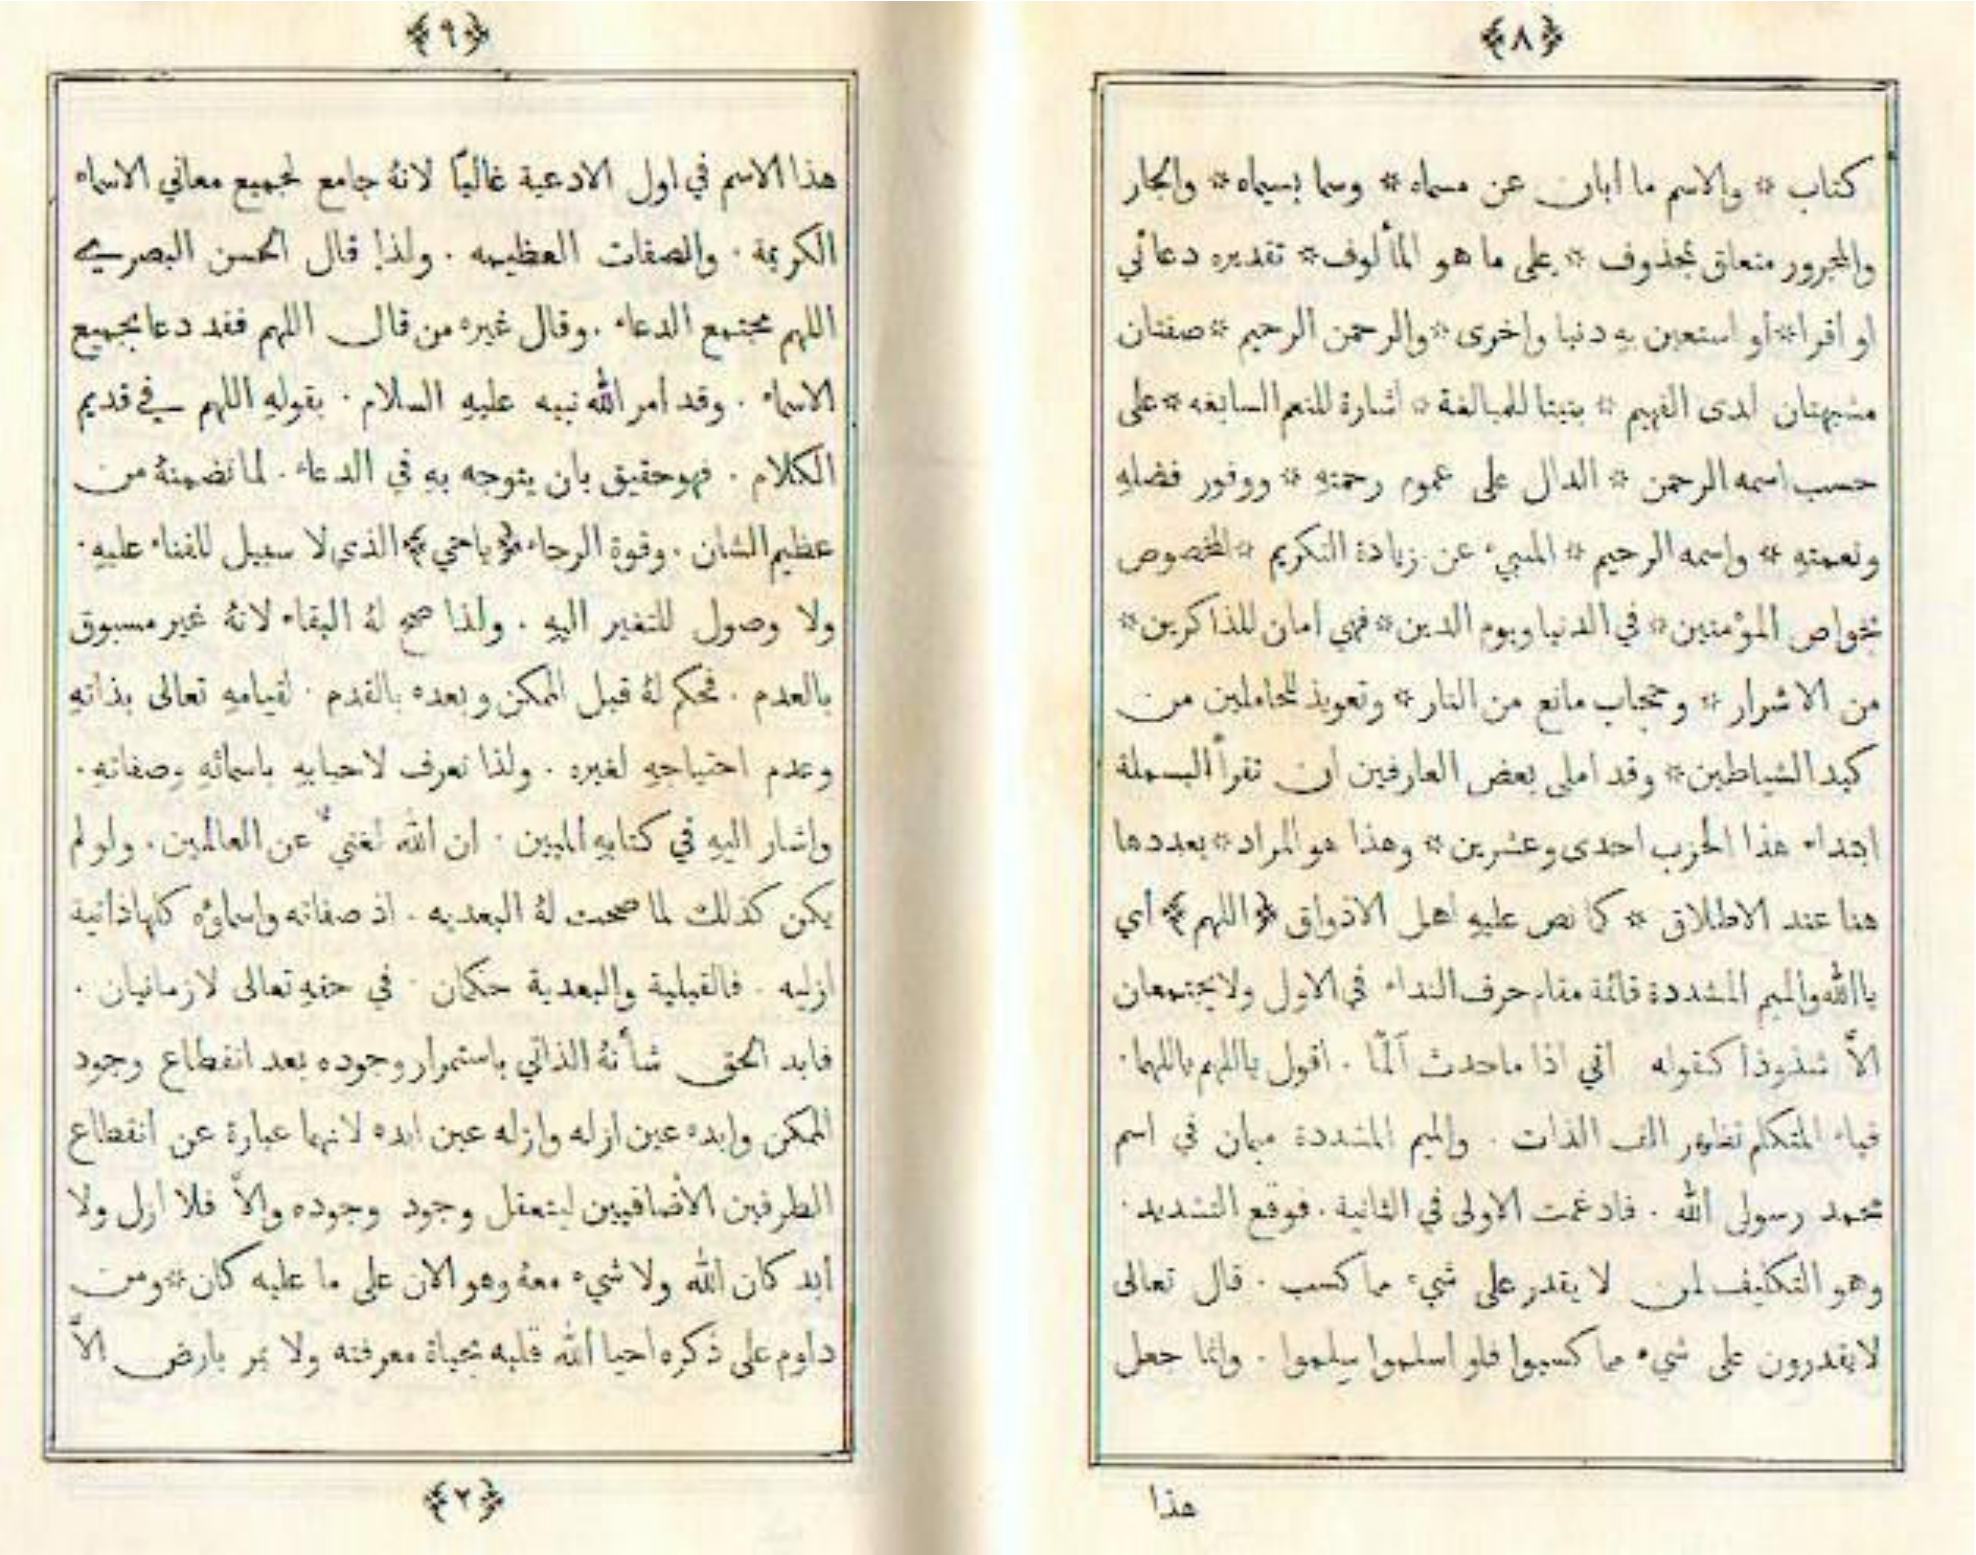 ﴿٨﴾
كتاب * والاسم ما أبان عن مسماه * وسما بسيماه * والجار
والمجرور متعلق بمحذوف * على ما هو المألوف * تقديره دعائي
او اقرا * أو استعين به دنيا واخرى * والرحمن الرحيم * صفتان
مشبهتان لدى الفهيم * بنيتا للمبالغة * اشارة للنعم السابغه * على
حسب اسمه الرحمن * الدال على عموم رحمتهِ * ووفور فضلهِ
ونعمتهِ * واسمه الرحيم * المنبيء عن زيادة التكريم * المخصوص
بخواص المؤمنين * في الدنيا ويوم الدين * فهي امان للذاكرين *
من الاشرار * وحجاب مانع من النار * وتعويذ للحاملين من
كيد الشياطين * وقد املى بعض العارفين ان تقرأ البسملة
ابتداء هذا الحزب احدى وعشرين * وهذا هو المراد * بعددها
هنا عند الاطلاق * كما نص عليهِ اهل الاذواق ﴿اللهم﴾ أي
ياالله والميم المشددة قائمة مقام حرف النداء في الاول ولا يجتمعان
الاَّ شذوذا كقوله اني اذا ما حدث ألمّا . اقول ياللهم ياللهما .
فياء المتكلم تظهر الف الذات . والميم المشددة ميمان في اسم
محمد رسول الله . فادغمت الاولى في الثانية . فوقع التشديد .
وهو التكليف لمن لا يقدر على شيء مما كسب . قال تعالى
لا يقدرون على شيء مما كسبوا فلو اسلموا سلموا . وانما جعل
هذا
﴿٩﴾
هذا الاسم في اول الادعية غالبًا لانهُ جامع لجميع معاني الاسماء
الكريمة . والصفات العظيمه . ولذا قال الحسن البصري
اللهم مجتمع الدعاء . وقال غيره من قال اللهم فقد دعا بجميع
الاسماء . وقد أمر الله نبيه عليهِ السلام . بقولهِ اللهم في قديم
الكلام . فهو حقيق بان يتوجه بهِ في الدعاء . لما تضمنهُ من
عظيم الشان . وقوة الرجاء ﴿ياحي﴾ الذي لا سبيل للفناء عليهِ .
ولا وصول للتغير اليهِ . ولذا صح لهُ البقاء لانهُ غير مسبوق
بالعدم . فحكم لهُ قبل الممكن وبعده بالقدم . لقيامهِ تعالى بذاتهِ
وعدم احتياجهِ لغيره . ولذا تعرف لاحبابهِ باسمائهِ وصفاتهِ .
واشار اليهِ في كتابهِ المبين . ان الله لغنيٌّ عن العالمين . ولو لم
يكن كذلك لما صحت لهُ البعديه . اذ صفاته واسماؤه كلها ذاتية
ازليه . فالقبلية والبعدية حكمان . في حقهِ تعالى لا زمانيان .
فابد الحق شأنهُ الذاتي باستمرار وجوده بعد انقطاع وجود
الممكن وابده عين ازله وازله عين ابده لانهما عبارة عن انقطاع
الطرفين الأضافيين ليتعقل وجود وجوده والاَّ فلا ازل ولا
أبد كان الله ولا شيء معهُ وهو الان على ما عليه كان * ومن
داوم على ذكره احيا الله قلبه بحياة معرفته ولا يمر بارض الاَّ
﴿٢﴾